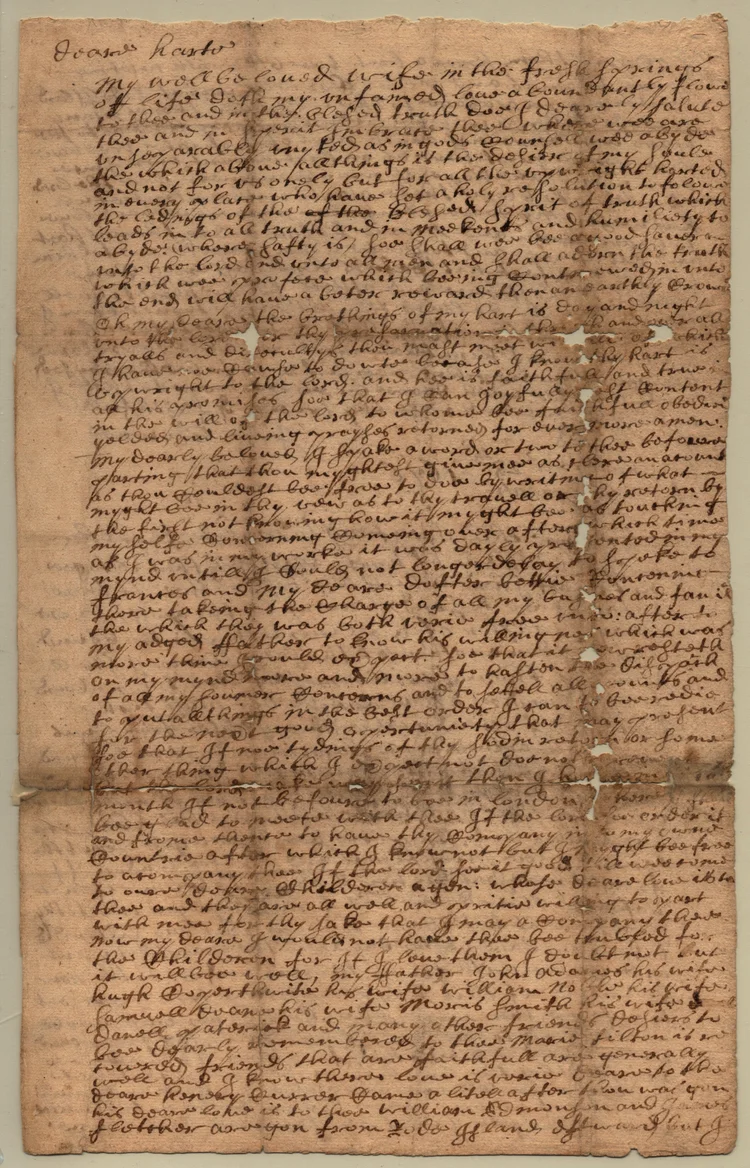 Deare harte
My well be loved wife in the fresh springs
of life doth my unfained love aboundantly flowe
to thee and in the blesed truth doe I dearely salute
thee and in spirit imbrace thee where wee are
unseparably united as in gods Counsell wee abyde
the which above all things is the desier of my soule
and not for us onely but for all the upright harted
in every place who have set a holy resolution to folow
the ledings of the of the Blesed spirit of truth which
leads in to all truth and in meekenes and humiliety to
abyde where safty is soe shall wee bee a good saver
unto the lord and unto all men and shall adorn the truth
which wee profese which beeing Continewed in unto
the end will have a beter reward then an earthly Crown
Oh my deare the brethings of my hart is day and night
unto the lord for thy preservation in the and over all
tryalls and dificultys thou mast meet
I have noe Cause to dowte because I know thy hart is
upright to the lord: and hee is faithfull and true in
all his promises soe that I Can joyfully Content
in the will of the lord to whome bee faithfull obedien
yelded and liveing prayses returned for ever more amen:
My dearly beloved I spake a word or two to thee before
parting that thou mightest give mee as Cleere an acount
as thou Couldest bee free to doe by writing of what
might bee in thy vew as to thy travell or thy return by
the first not knowing how it might bee as touching
my selfe Conserning Comeing over after which time
as I was in my worke it was dayly presented in my
mynd untill I Could not longer delay to speke to
frances and my deare dafter bettie Concerning
there takeing the Charge of all my busines and famil
the which they was both verie free unto: after to
my adged ffather to know his willingnes which was
more then I Could expect. soe that it resteth
on my mynd more and more to hasten the dispatch
of all my houmer Conserns and to settell all and
to put all things in the best order I can to bee redie
for the next good opertuniety that may present
soe that if noe tydings of thy soden return or some
other thing which I expect not doe not
month if not before to bee in london where
bee glad to meete with thee If the lord soe order it
and frome thence to have thy Company in to my owne
Countrie after which I know not but I might bee free
to acompany thee If the lord see it good
to oure deare Childeren agen: whose deare love is to
thee and they are all well and pritie willing to part
with mee for thy sake that I may acompany thee
Now my deare I would not have thee bee trubled for
the Childeren for If I leve them I doubt not but
it will bee well, my ffather John adames his wife
hugh Copperthwite his wife william Noble his wife
samuell deane his wife Morris Smith his wife
daniell paterick and many other friends desiers to
bee dearly remembered to thee Marie tilton is re
covered friends that are faithfull are generally
well and I know there love is verie deare to thee
deare henery Currer Came a litell after thou was gon
his deare love is to thee william Edmonson and James
fletcher are gon from Rode Island estward but I